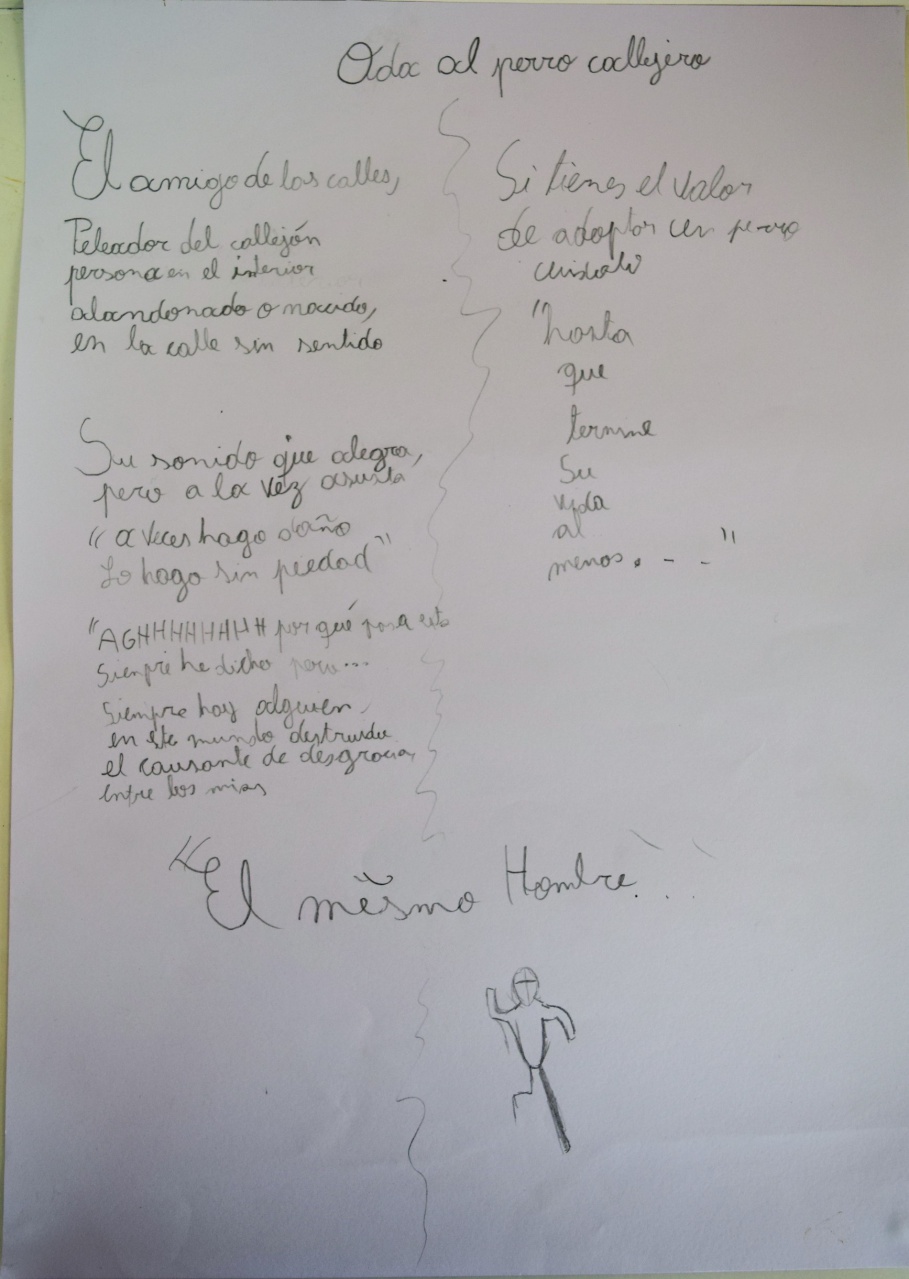 Oda al perro callejero
El amigo de las calles,
Peleador del callejón
persona en el interior
abandonado o nacido,
en la calle sin sentido
Su sonido que alegra,
pero a la vez asusta
"a veces hago daño
Lo hago sin piedad"
"AGHHHHHHHH por qué pasa esto
Siempre he dicho pero...
Siempre hay alguien
en este mundo
el causante de desgracia,
entre los mios
"El mismo Hombre...
Si tienes el valor
de adoptar un perro
cuidalo
"hasta
que
termine
su
vida
al
menos. - -"